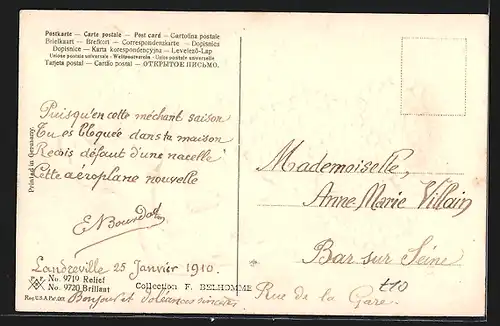 Postkarte — Carte postale — Post card — Cartolina postale
Briefkaart — Brefkort — Correspondenzkarte — Dopisnica
Dopisnice — Karta korespondencyjna — Levelező-Lap
Unione postale universale — Weltpostverein — Union postale universelle
Tarjeta postal — Cartão postal — ОТКРЫТОЕ ПИСЬМО.
Puisqu'en cette méchant saison
Tu es bloquée dans ta maison
Reçois défaut d'une nacelle
Cette aeroplane nouvelle
E Bourdot
Landreville 25 Janvier 1910.
Bonjour et doléances sincères
Printed in Germany.
No. 9719 Relief
No. 9720 Brillant
Collection F. BELHOMME
Mademoiselle,
Anne Marie Villain
Bar sur Seine
Rue de la Gare
t10